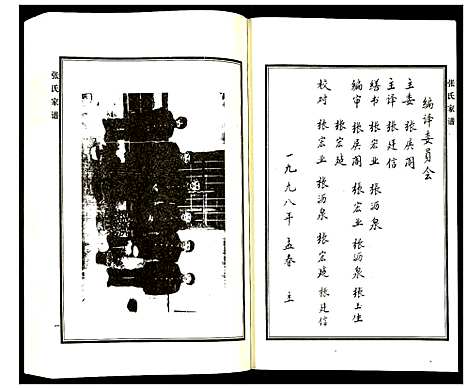 张氏家谱
编译委员会
主委 张庚阁
主译 张廷信
缮书 张宏业 张沥泉
编审 张庚阁 张宏业 张沥泉 张玉生
张宏延
校对 张宏业 张沥泉 张宏延 张廷信
一九九八年 孟春 立
张氏家谱